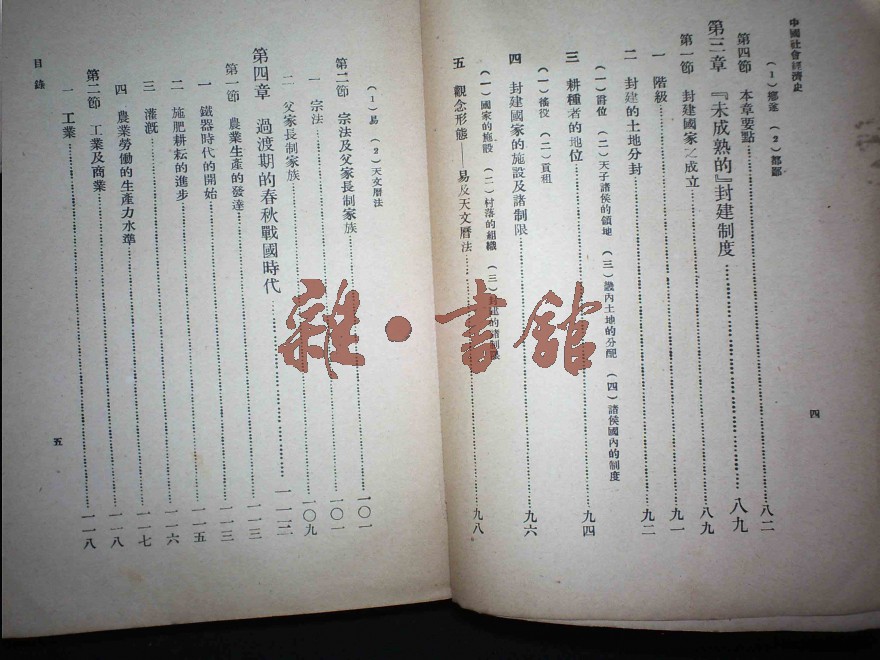 中國社會經濟史
(1)鄉遂 (2)都鄙
第四節 本章要點……八二
第三章 『未成熟的』封建制度……八九
第一節 封建國家之成立……八九
一 階級……九一
二 封建的土地分封……九二
(一)爵位 (二)天子諸侯的領地 (三)畿內土地的分配 (四)諸侯國內的制度
三 耕種者的地位……九四
(一)徭役 (二)貢租
四 封建國家的施設及諸制限……九六
(一)國家的施設 (二)村落的組織 (三)封建的諸制限
五 觀念形態——易及天文曆法……九八
四
(1)易 (2)天文曆法
第二節 宗法及父家長制家族……一〇一
一 宗法……一〇一
二 父家長制家族……一〇九
第四章 過渡期的春秋戰國時代……一一二
第一節 農業生產的發達……一一三
一 鐵器時代的開始……一一三
二 施肥耕耘的進步……一一五
三 灌漑……一一六
四 農業勞働的生產力水準……一一七
第二節 工業及商業……一一八
一 工業……一一八
目錄
五
雜·書館